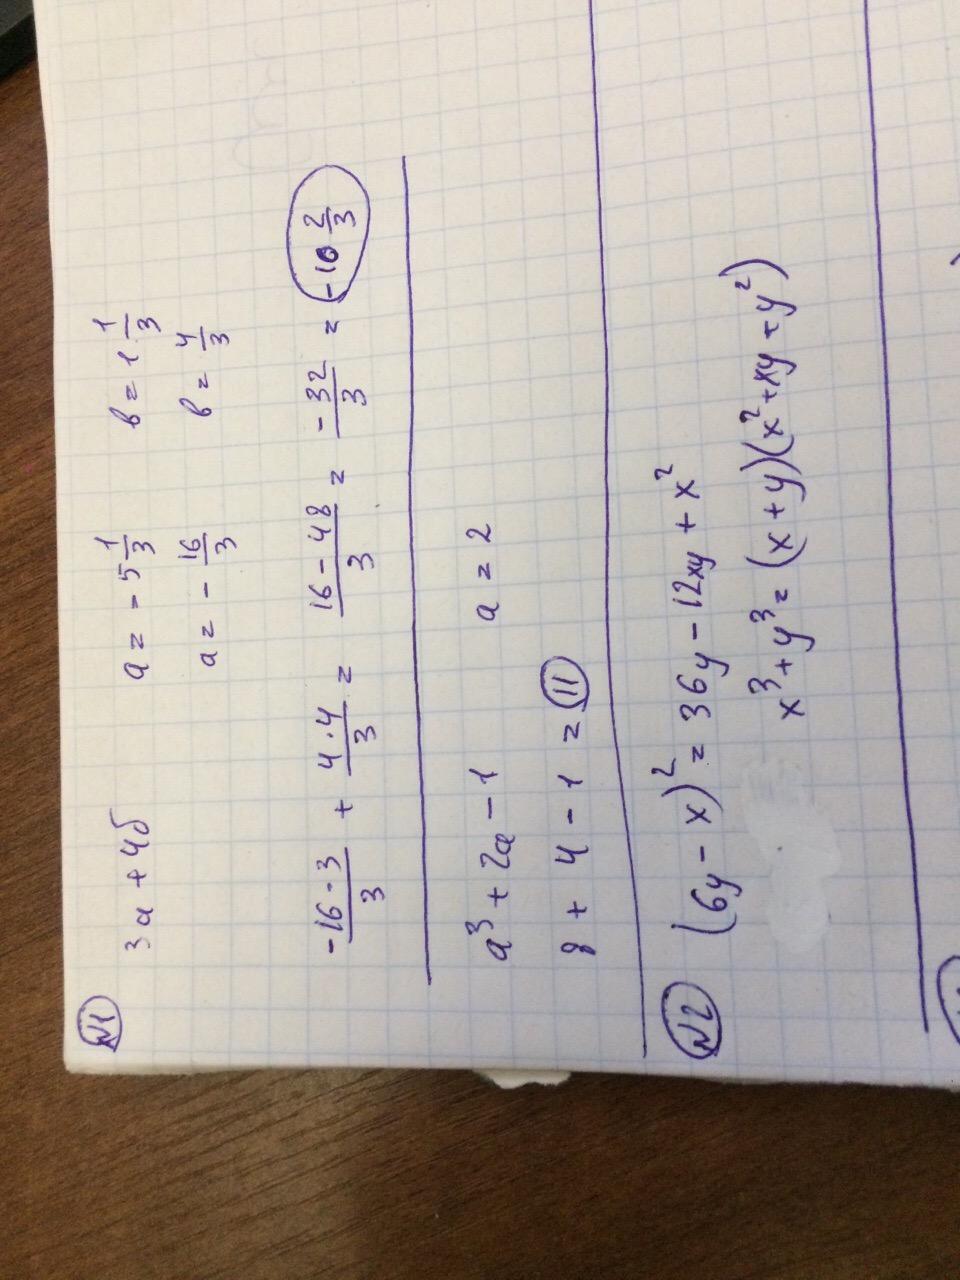 N1 3a + 4б a = -5 1/3 в = 1 1/3
a = - 16/3 в = 4/3
-16·3/3 + 4·4/3 = 16-48/3 = -32/3 = -10 2/3
a³ + 2a - 1 a = 2
8 + 4 - 1 = 11
N2 (6y - x)² = 36y - 12xy + x²
x³ + y³ = (x + y)(x² + xy + y²)